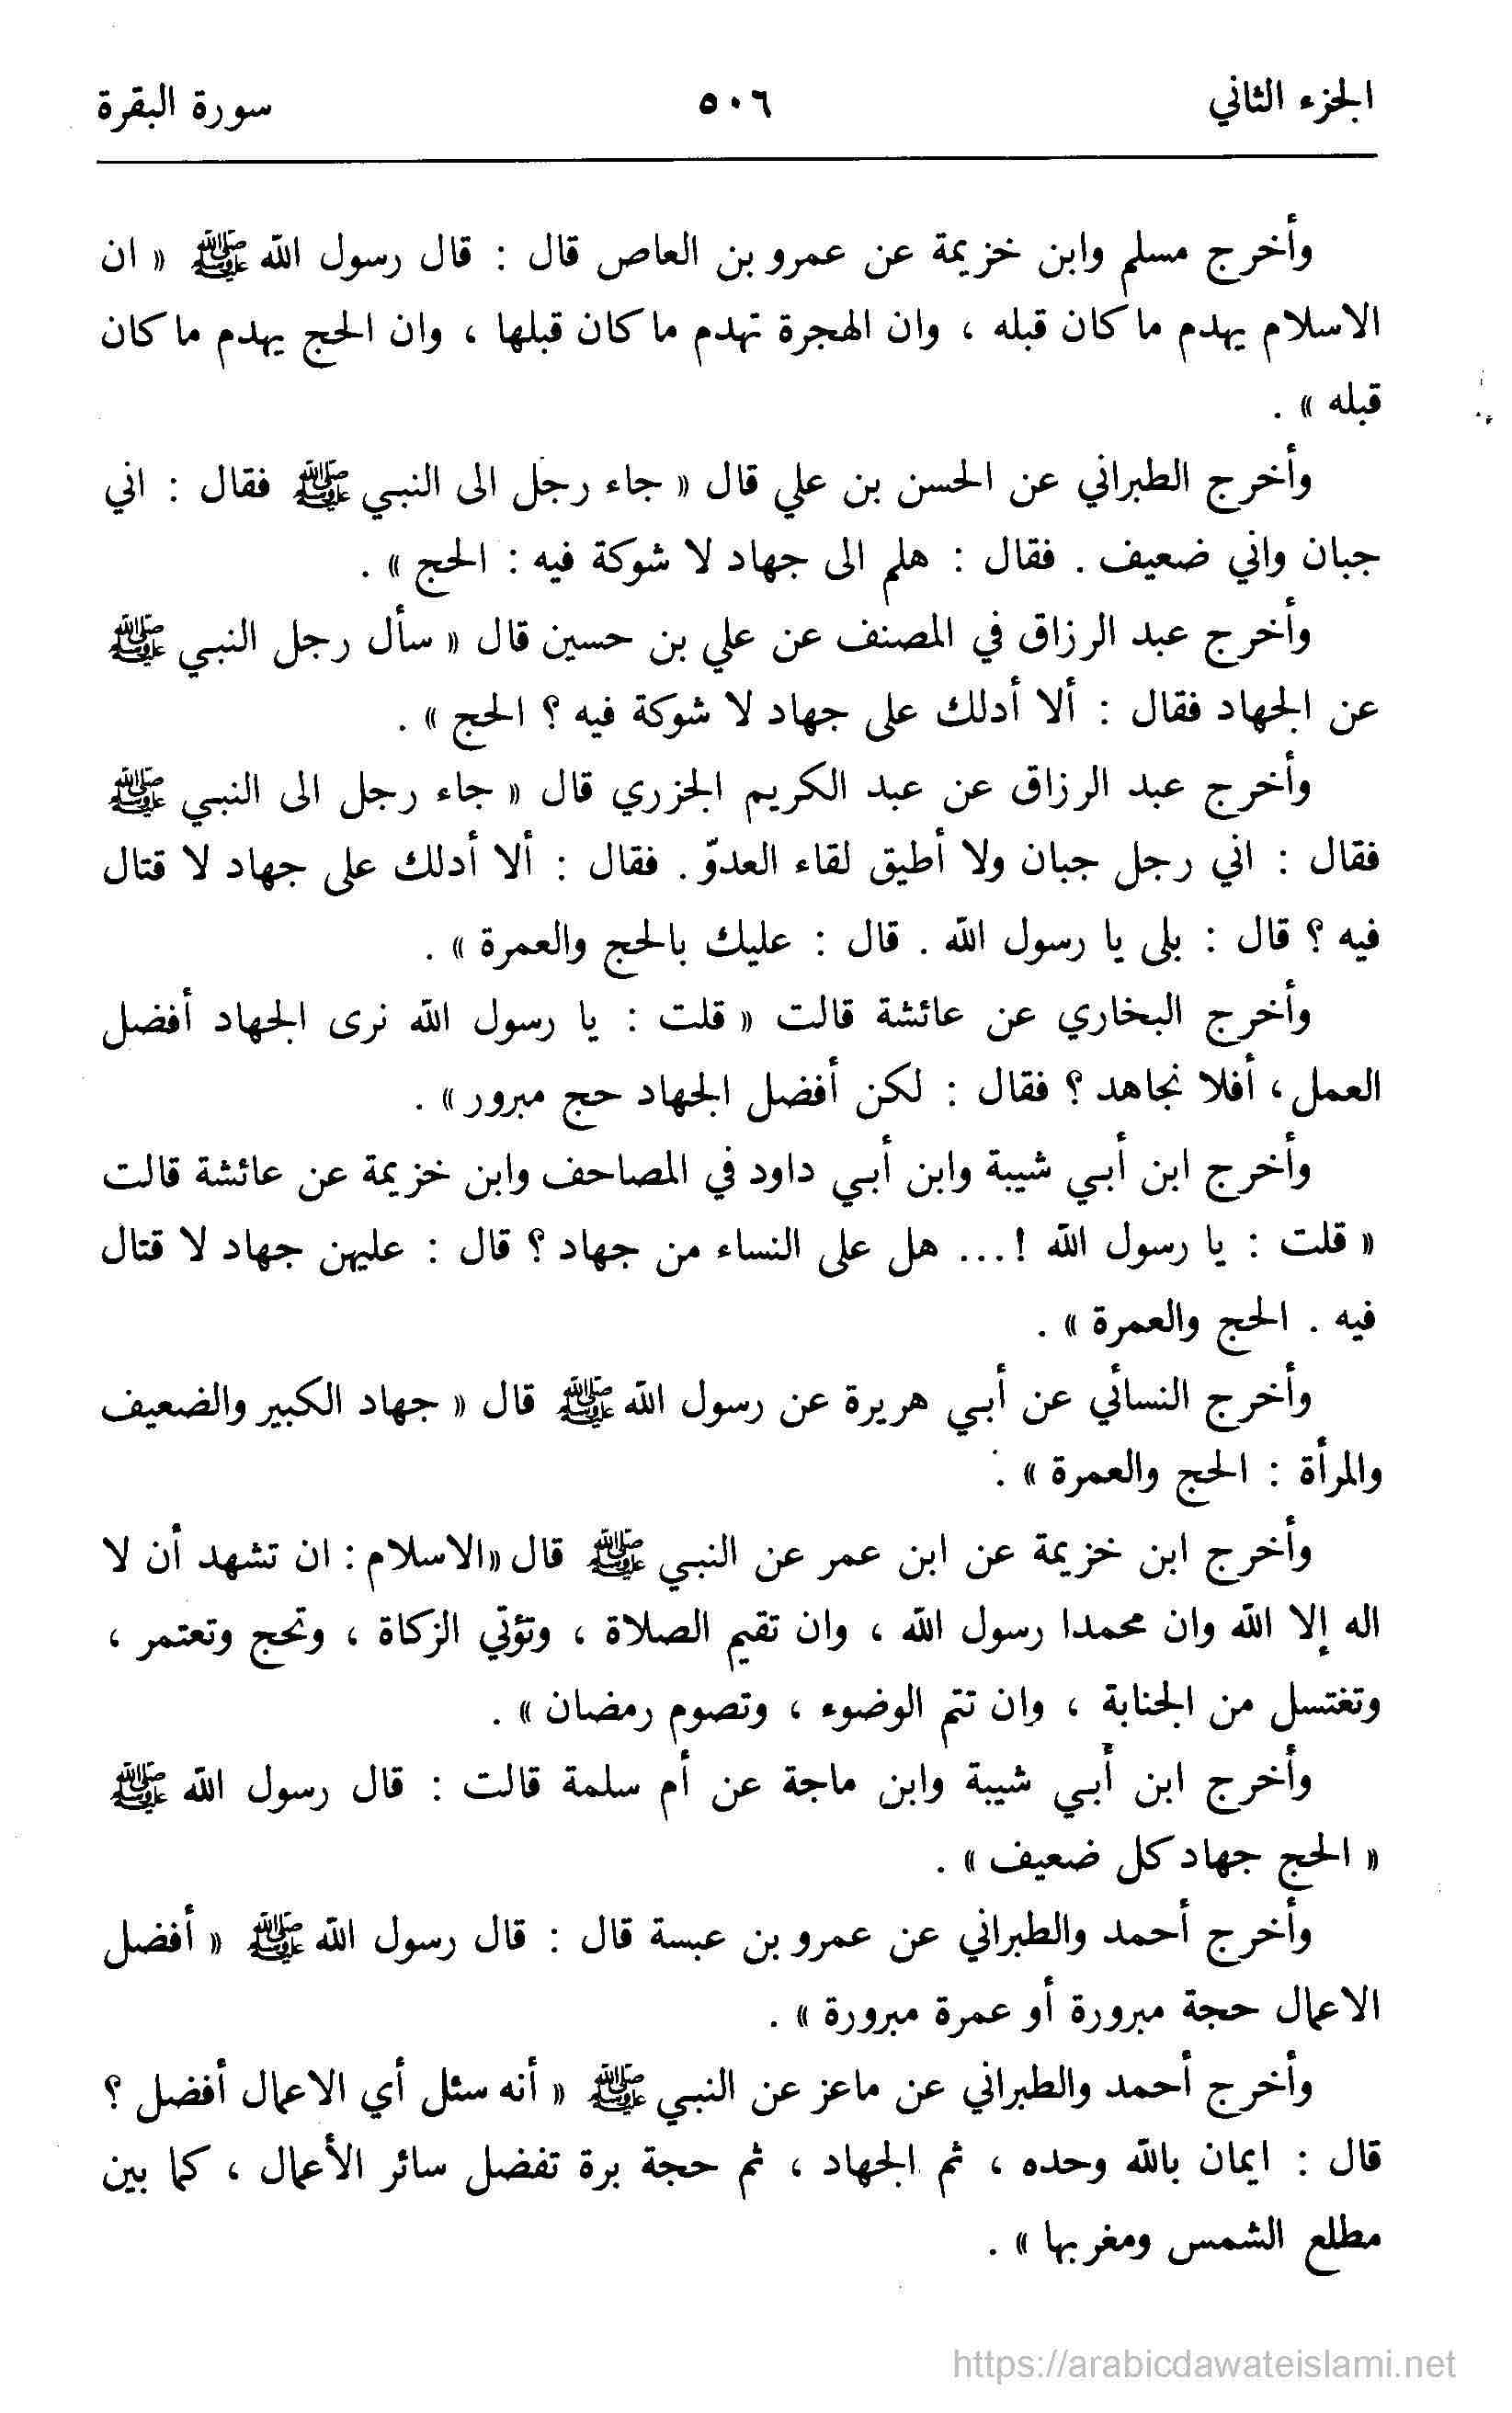 الجزء الثاني ٥٠٦ سورة البقرة
وأخرج مسلم وابن خزيمة عن عمرو بن العاص قال : قال رسول الله ﷺ « ان
الاسلام يهدم ما كان قبله ، وان الهجرة تهدم ما كان قبلها ، وان الحج يهدم ما كان
قبله » .
وأخرج الطبراني عن الحسن بن علي قال « جاء رجل الى النبي ﷺ فقال : اني
جبان واني ضعيف . فقال : هلم الى جهاد لا شوكة فيه : الحج » .
وأخرج عبد الرزاق في المصنف عن علي بن حسين قال « سأل رجل النبي ﷺ
عن الجهاد فقال : ألا أدلك على جهاد لا شوكة فيه ؟ الحج » .
وأخرج عبد الرزاق عن عبد الكريم الجزري قال « جاء رجل الى النبي ﷺ
فقال : اني رجل جبان ولا أطيق لقاء العدوّ . فقال : ألا أدلك على جهاد لا قتال
فيه ؟ قال : بلى يا رسول الله . قال : عليك بالحج والعمرة » .
وأخرج البخاري عن عائشة قالت « قلت : يا رسول الله نرى الجهاد أفضل
العمل ، أفلا نجاهد ؟ فقال : لكن أفضل الجهاد حج مبرور » .
وأخرج ابن أبي شيبة وابن أبي داود في المصاحف وابن خزيمة عن عائشة قالت
« قلت : يا رسول الله !... هل على النساء من جهاد ؟ قال : عليهن جهاد لا قتال
فيه . الحج والعمرة » .
وأخرج النسائي عن أبي هريرة عن رسول الله ﷺ قال « جهاد الكبير والضعيف
والمرأة : الحج والعمرة » .
وأخرج ابن خزيمة عن ابن عمر عن النبي ﷺ قال «الاسلام : ان تشهد أن لا
اله إلا الله وان محمدا رسول الله ، وان تقيم الصلاة ، وتؤتي الزكاة ، وتحج وتعتمر ،
وتغتسل من الجنابة ، وان تتم الوضوء ، وتصوم رمضان » .
وأخرج ابن أبي شيبة وابن ماجة عن أم سلمة قالت : قال رسول الله ﷺ
« الحج جهاد كل ضعيف » .
وأخرج أحمد والطبراني عن عمرو بن عبسة قال : قال رسول الله ﷺ « أفضل
الاعمال حجة مبرورة أو عمرة مبرورة » .
وأخرج أحمد والطبراني عن ماعز عن النبي ﷺ « أنه سئل أي الاعمال أفضل ؟
قال : ايمان بالله وحده ، ثم الجهاد ، ثم حجة برة تفضل سائر الأعمال ، كما بين
مطلع الشمس ومغربها » .
https://arabicdawateislami.net